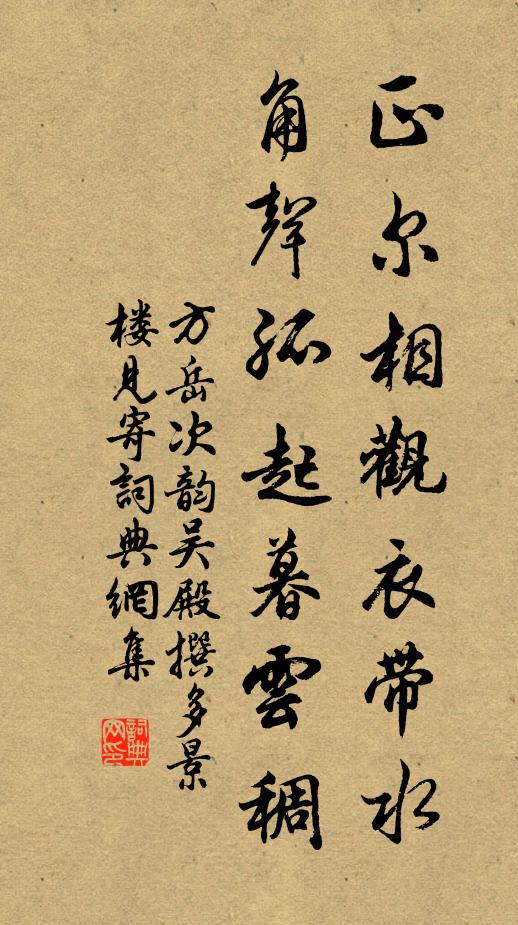 正尔相觀衣带水
角聲孤起暮雲稠
方岳次韵吴殿撰多景
楼見寄詞典網集
詞典
网印